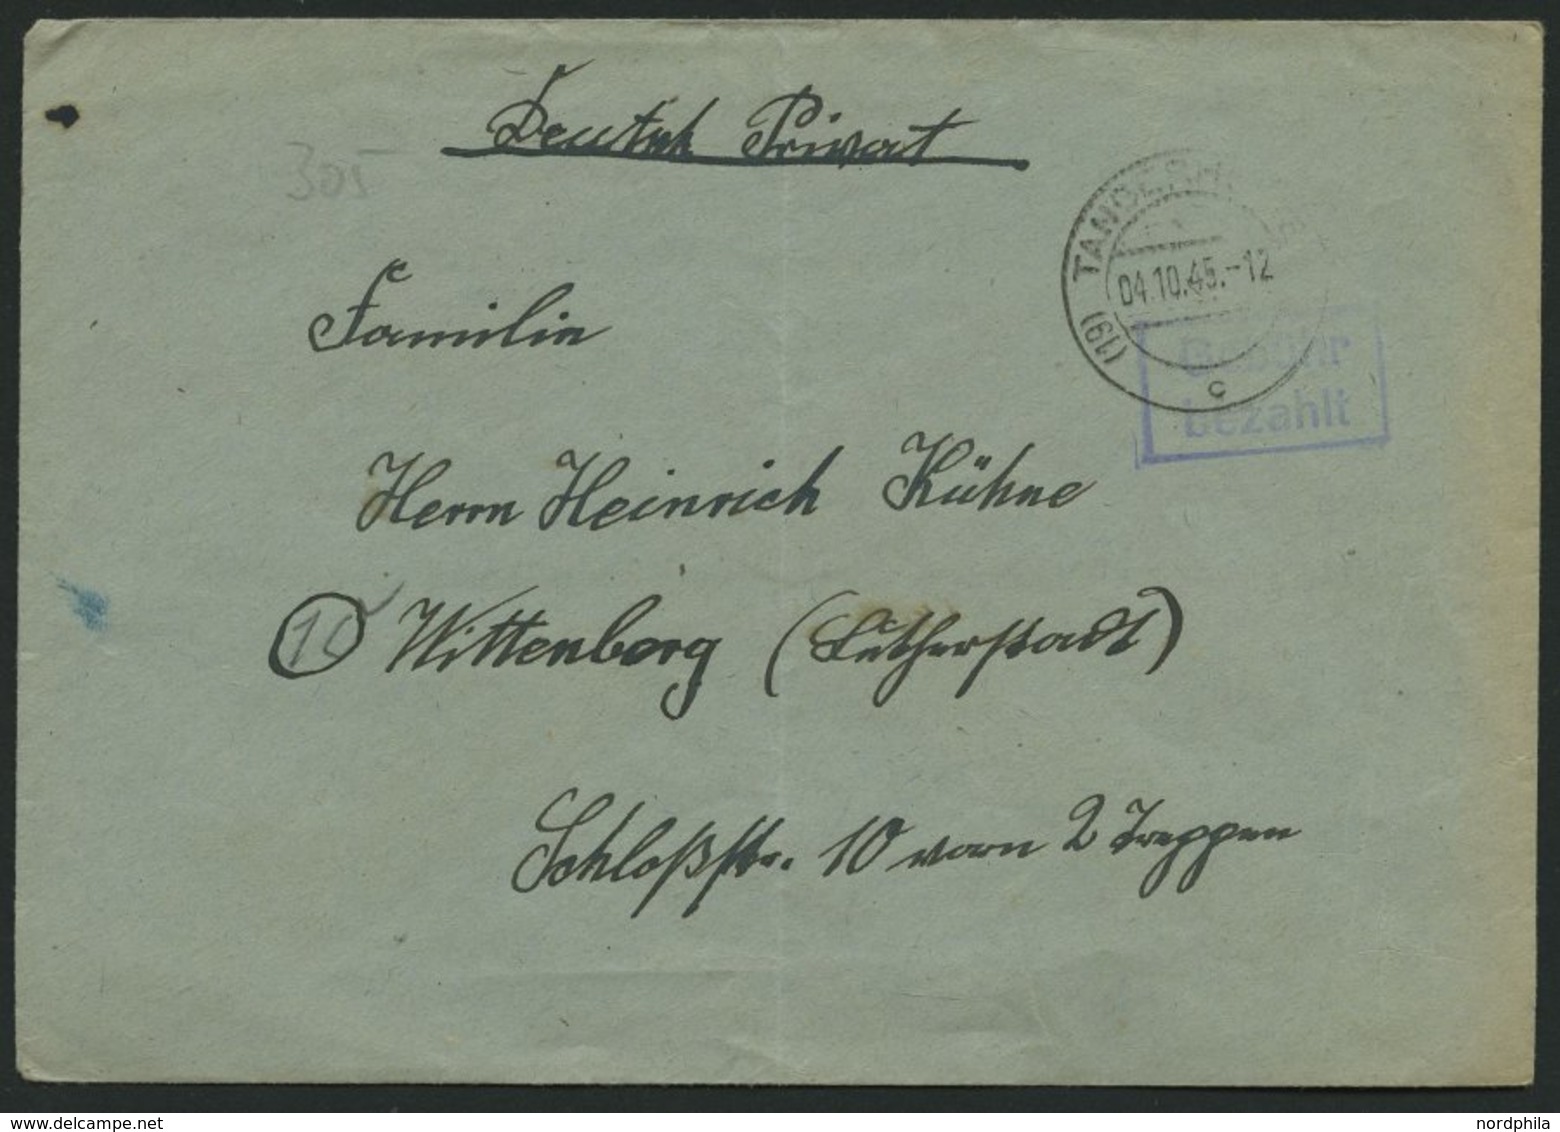 Deutsch Privat
305
(19) TANGERM
04.10.45.-12
c
Gebühr
bezahlt
Familie
Herrn Heinrich Kühne
Wittenberg (Lutherstadt)
Schloßstr. 10 vorn 2 Treppen
nordphila